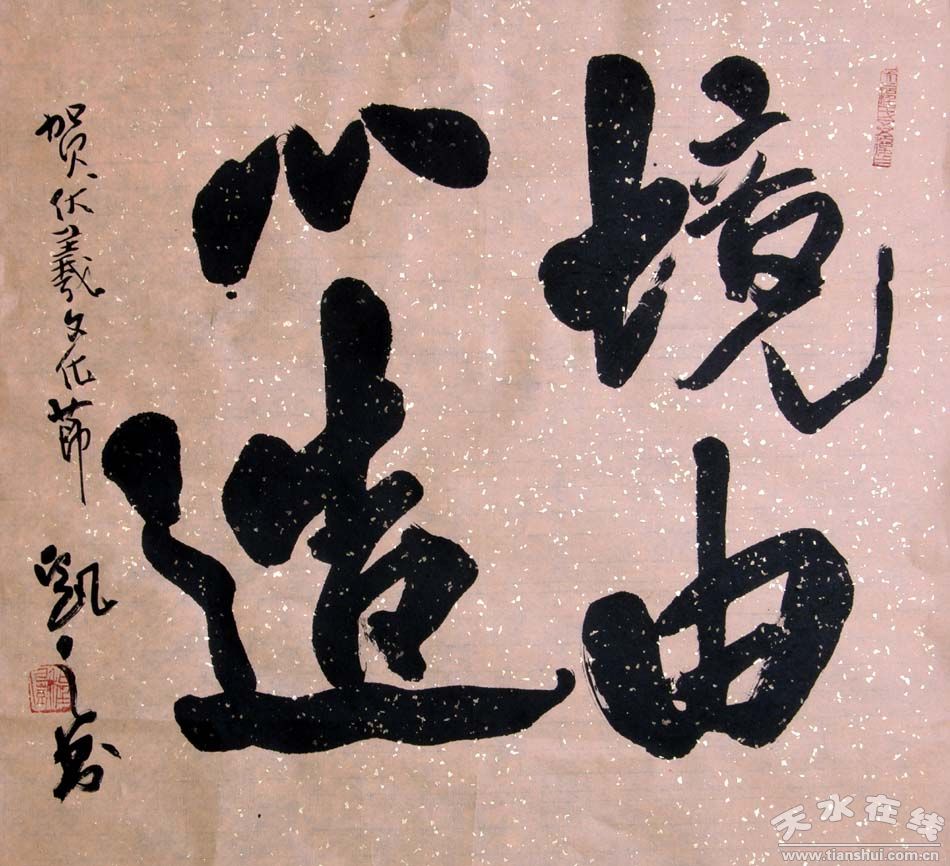 境由
心造
贺伏羲文化节
凯
天水在线
www.tianshui.com.cn